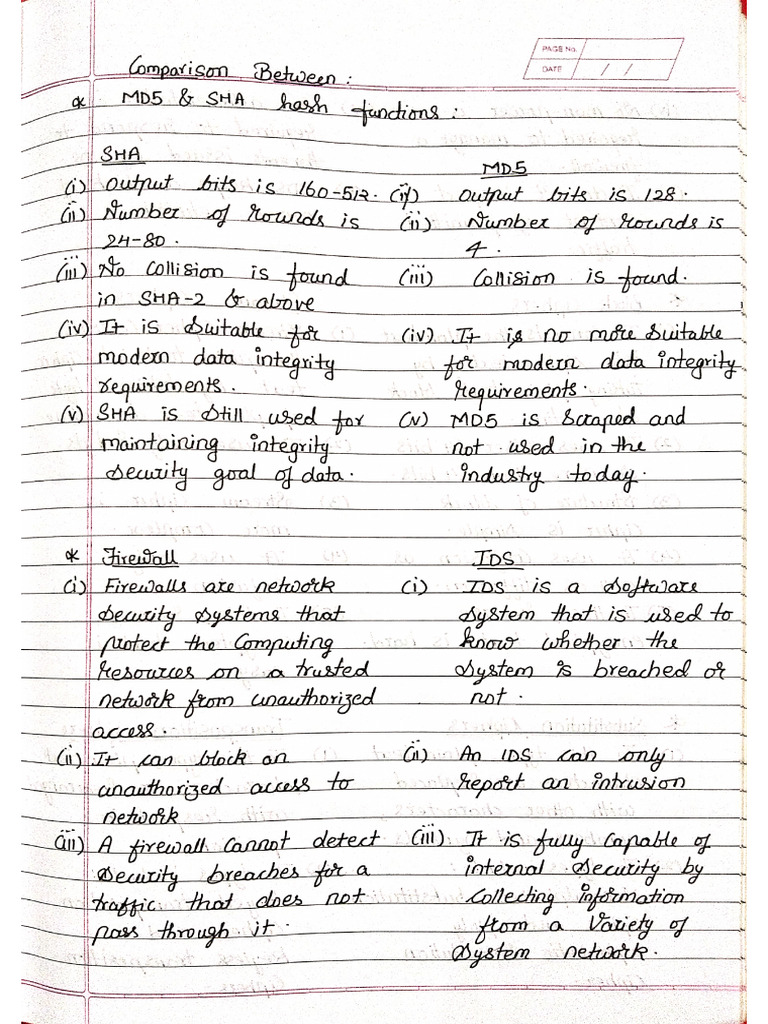 PAGE No.
DATE / /
Comparison Between :
* MD5 & SHA hash functions :
SHA
(i) Output bits is 160-512.
(ii) Number of rounds is
24-80.
(iii) No Collision is found
in SHA-2 & above
(iv) It is Suitable for
modern data integrity
requirements.
(v) SHA is still used for
maintaining integrity
security goal of data.
MD5
(i) Output bits is 128.
(ii) Number of rounds is
4.
(iii) Collision is found.
(iv) It is no more suitable
for modern data integrity
requirements.
(v) MD5 is Scraped and
not used in the
industry today.
* Firewall
(i) Firewalls are network
security systems that
protect the Computing
resources on a trusted
network from unauthorized
access.
(ii) It can block an
unauthorized access to
network
(iii) A firewall cannot detect
security breaches for a
traffic that does not
pass through it.
IDS
(i) IDS is a software
system that is used to
know whether the
system is breached or
not.
(ii) An IDS can only
report an intrusion
(iii) It is fully capable of
internal security by
Collecting information
from a Variety of
system network.